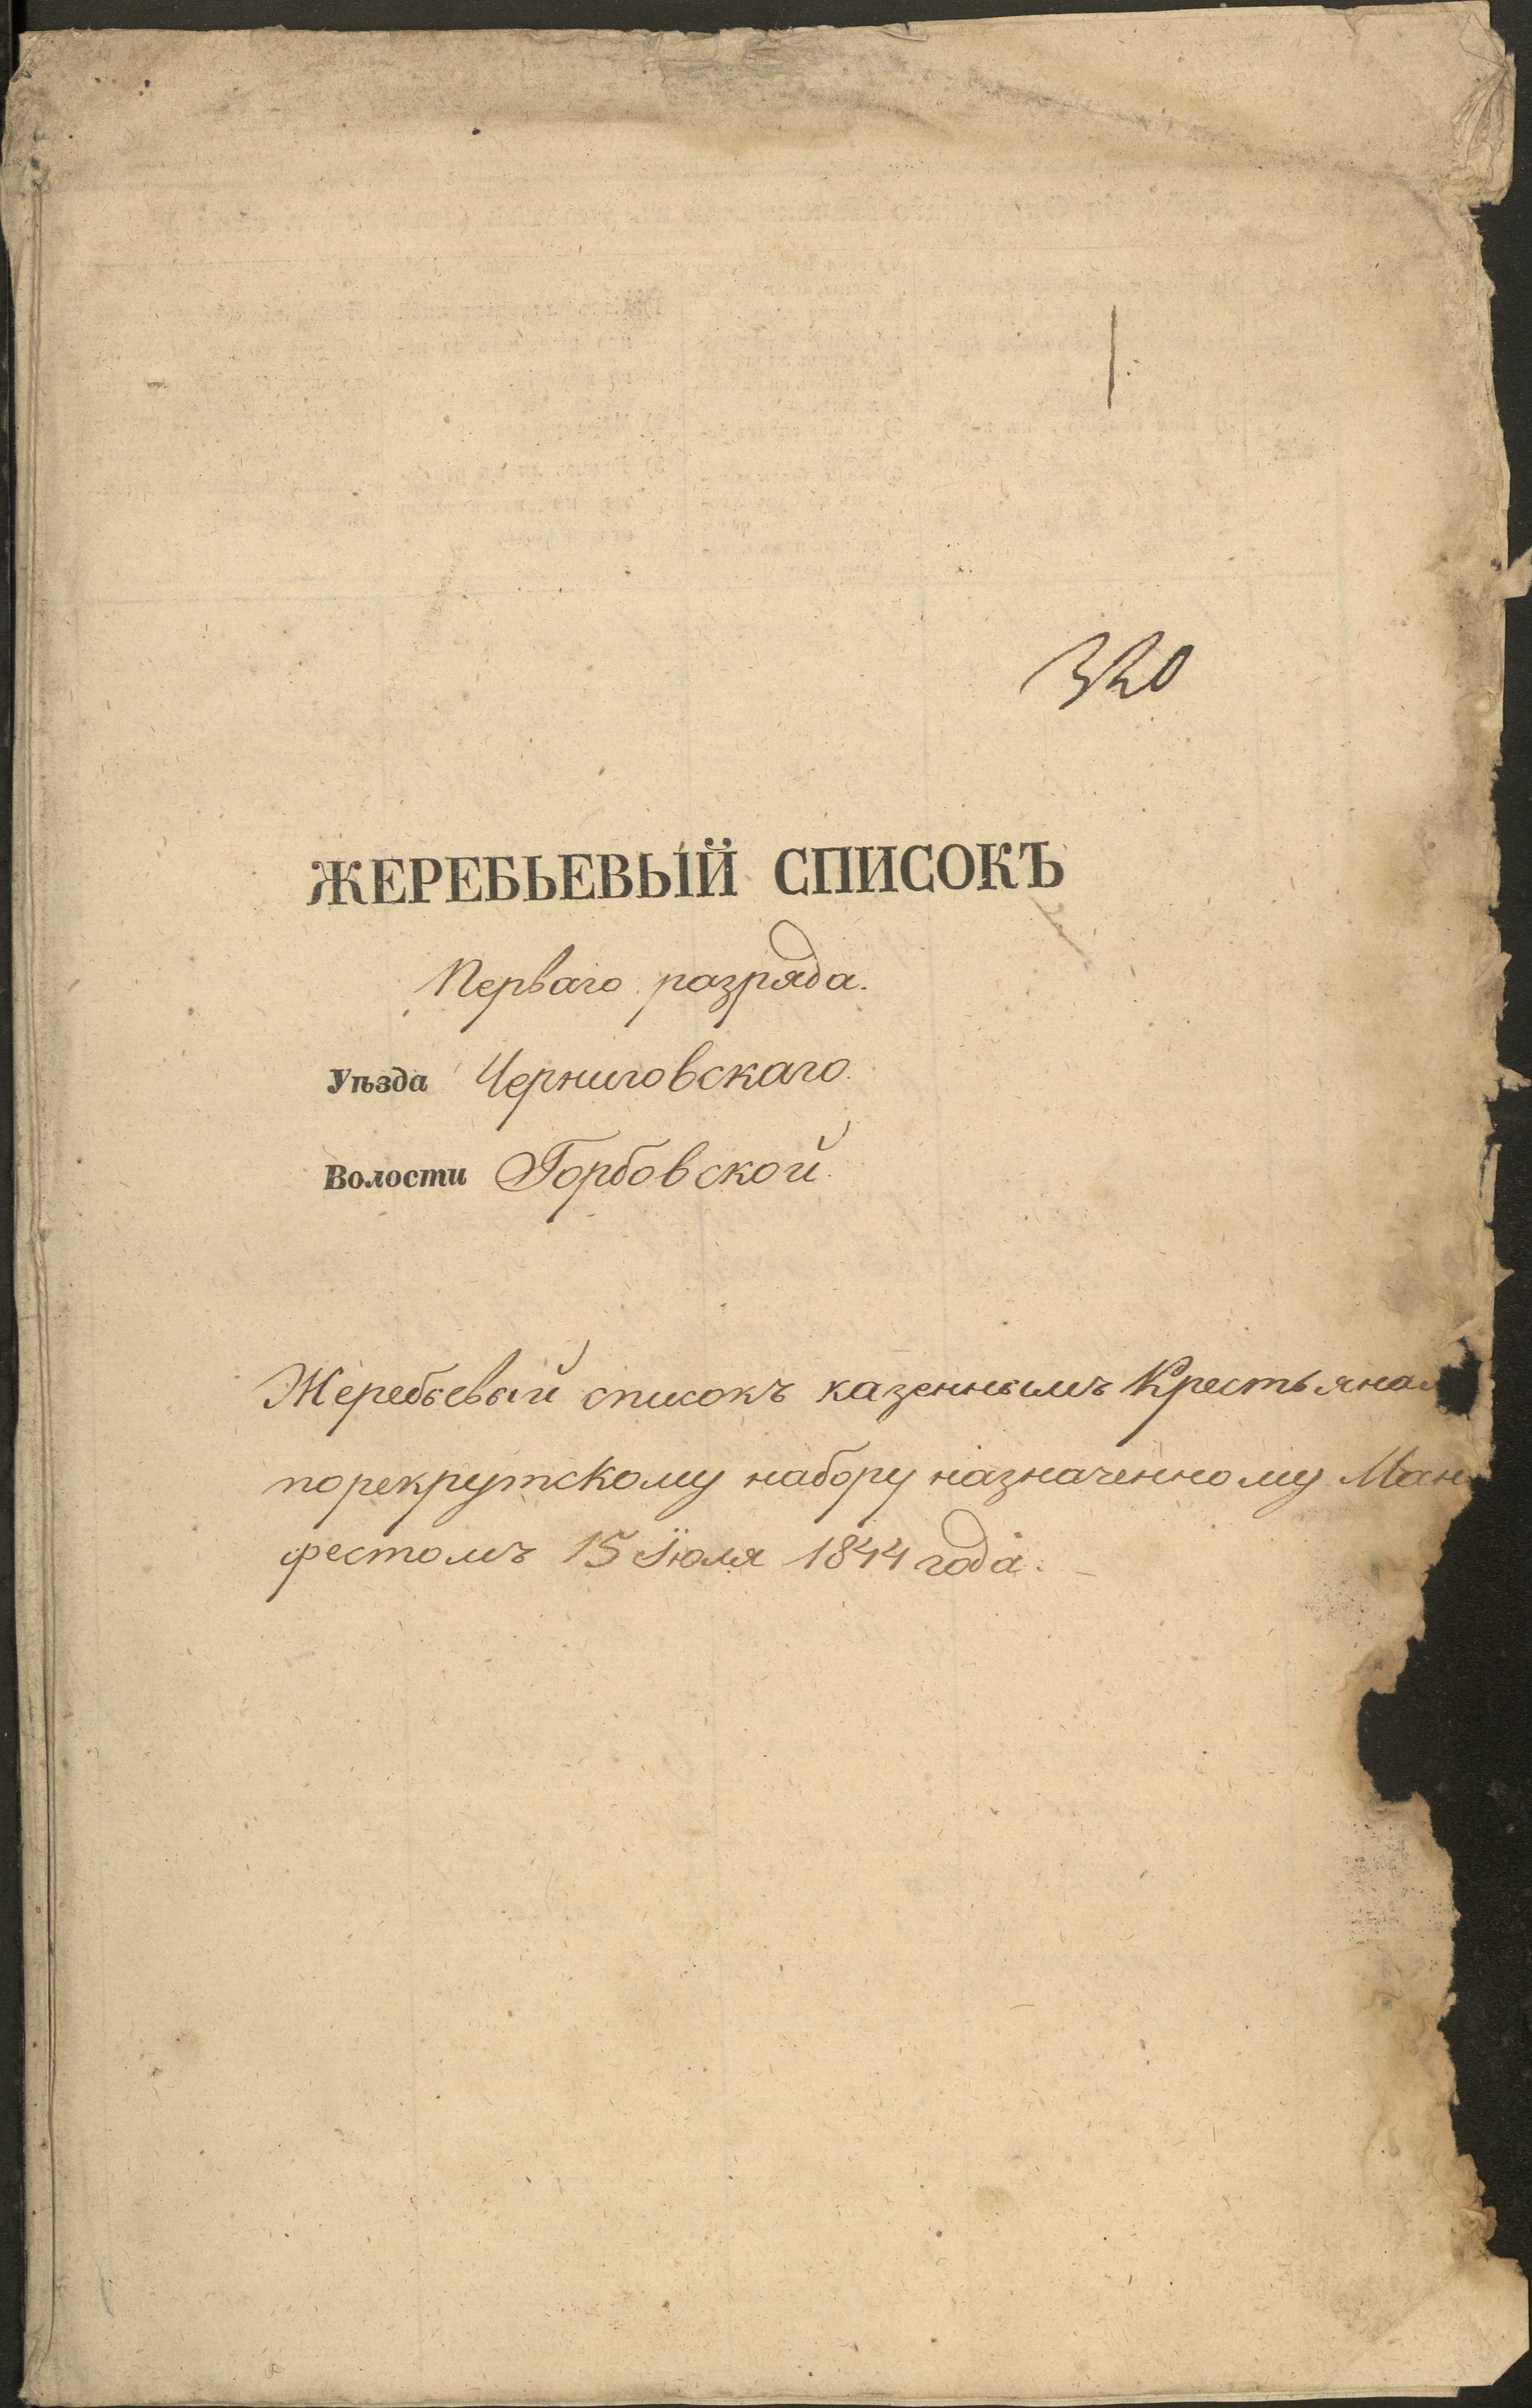 1
320
ЖЕРЕБЬЕВЫЙ СПИСОКЪ
Перваго разряда.
Уѣзда Черниговскаго.
Волости Горбовской.
Жеребьевый списокъ казеннымъ Крестьянам
порекрутскому набору назначенному Мани
фестомъ 15 Іюля 1844 года.